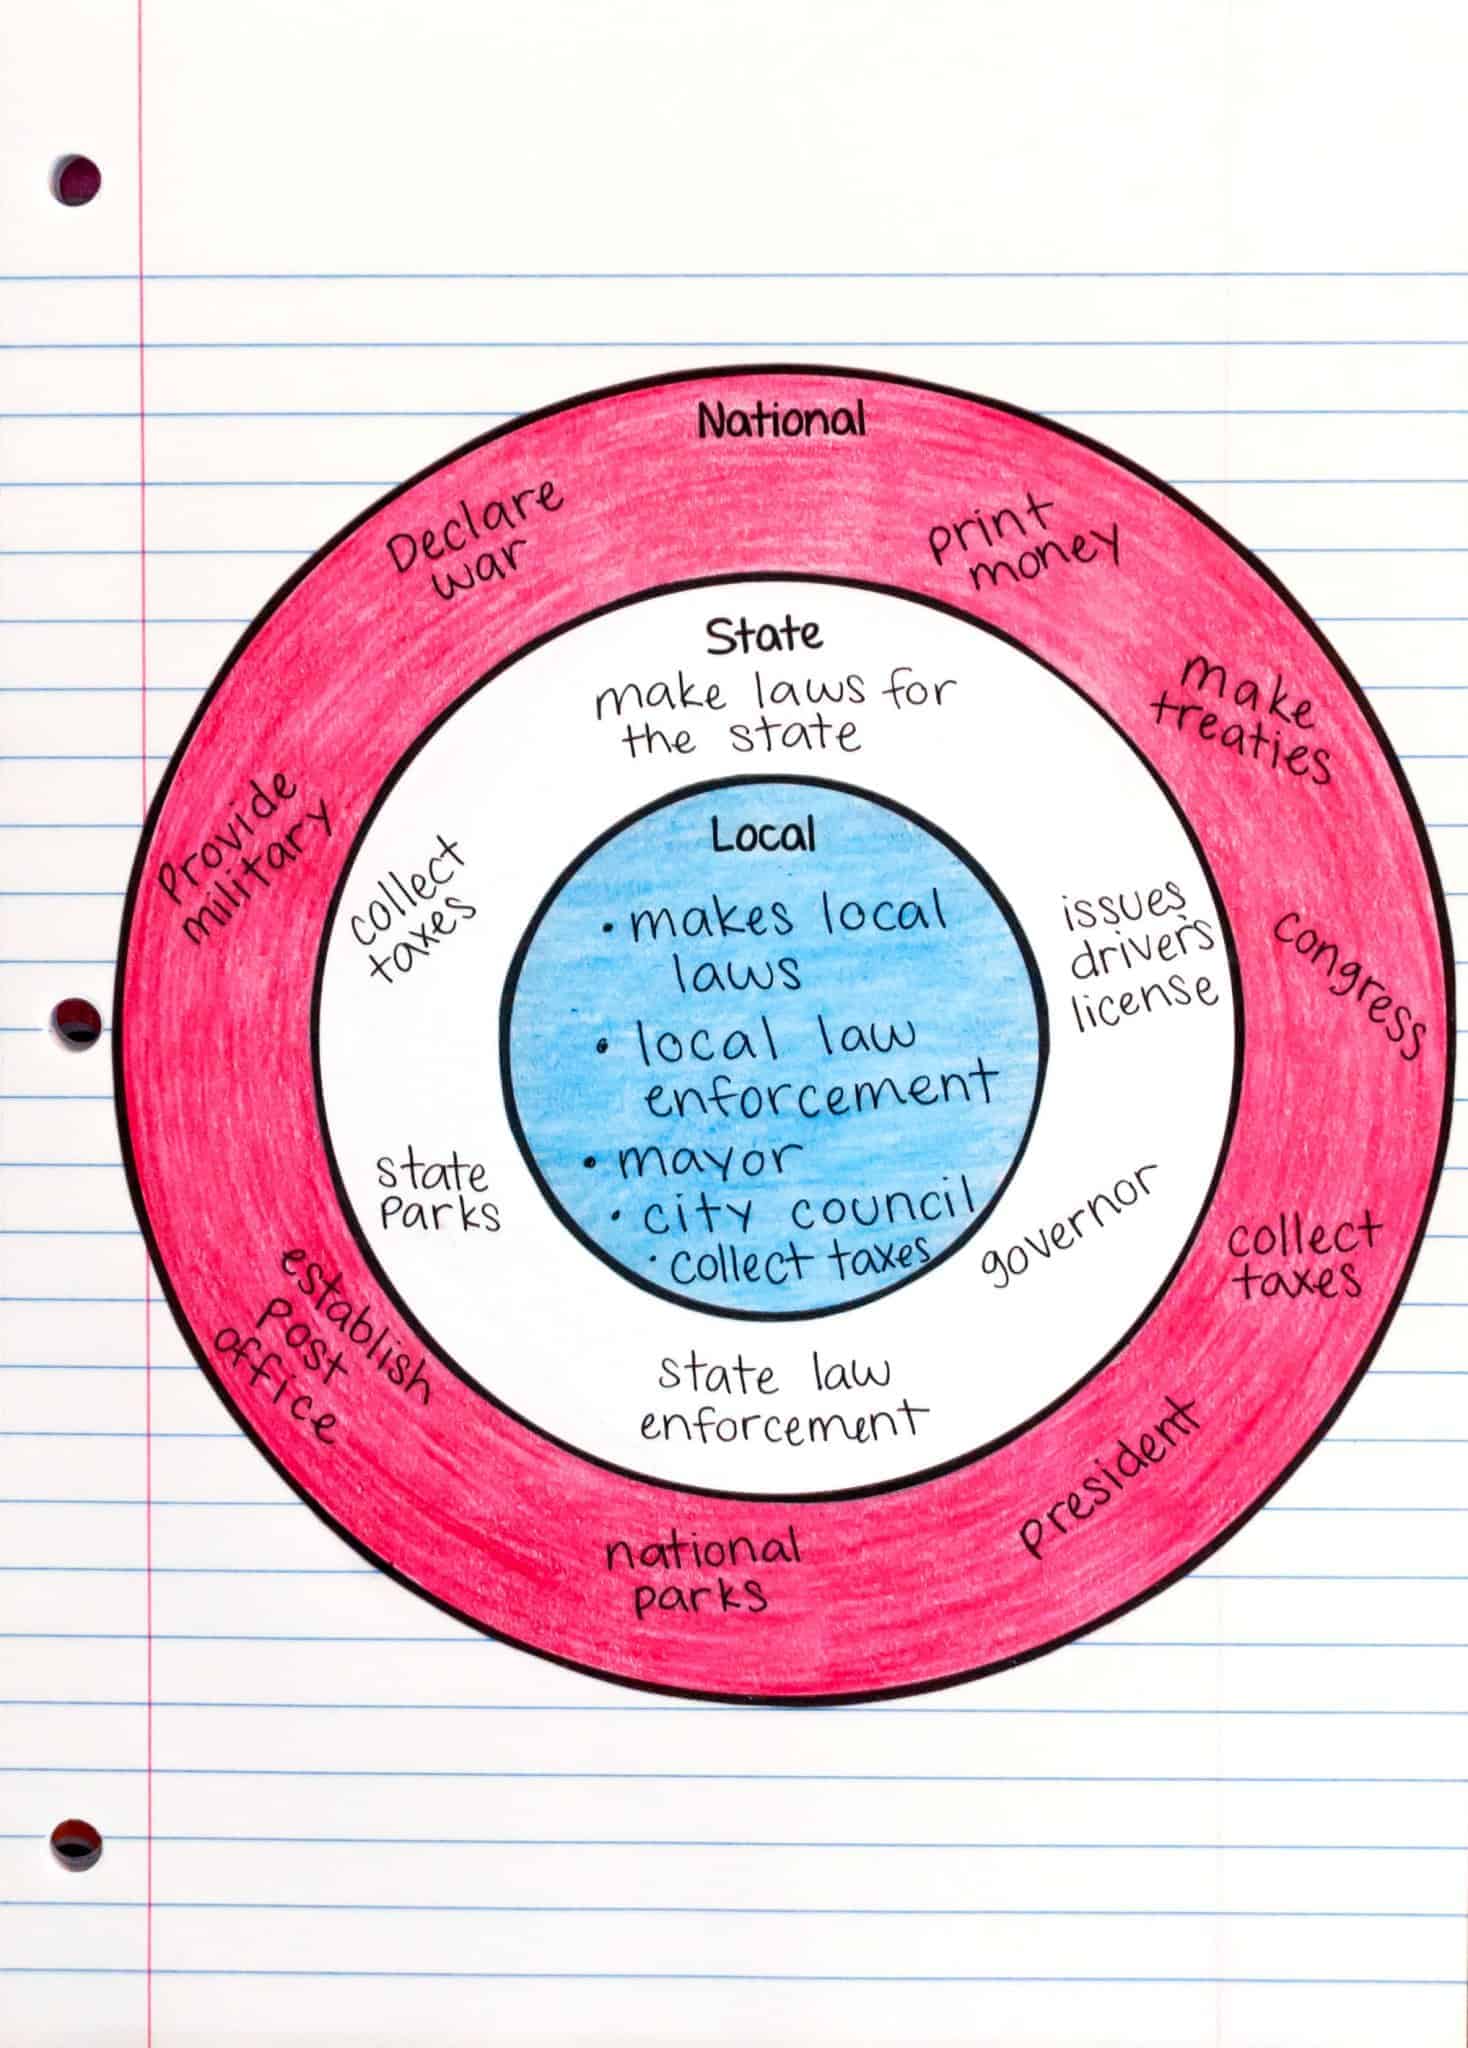 National
Declare
war
print
money
make
treaties
Provide
military
congress
establish
post
office
collect
taxes
president
national
parks
State
make laws for
the state
collect
taxes
issues
driver's
license
state
Parks
governor
state law
enforcement
Local
• makes local
laws
• local law
enforcement
• mayor
• city council
• collect taxes